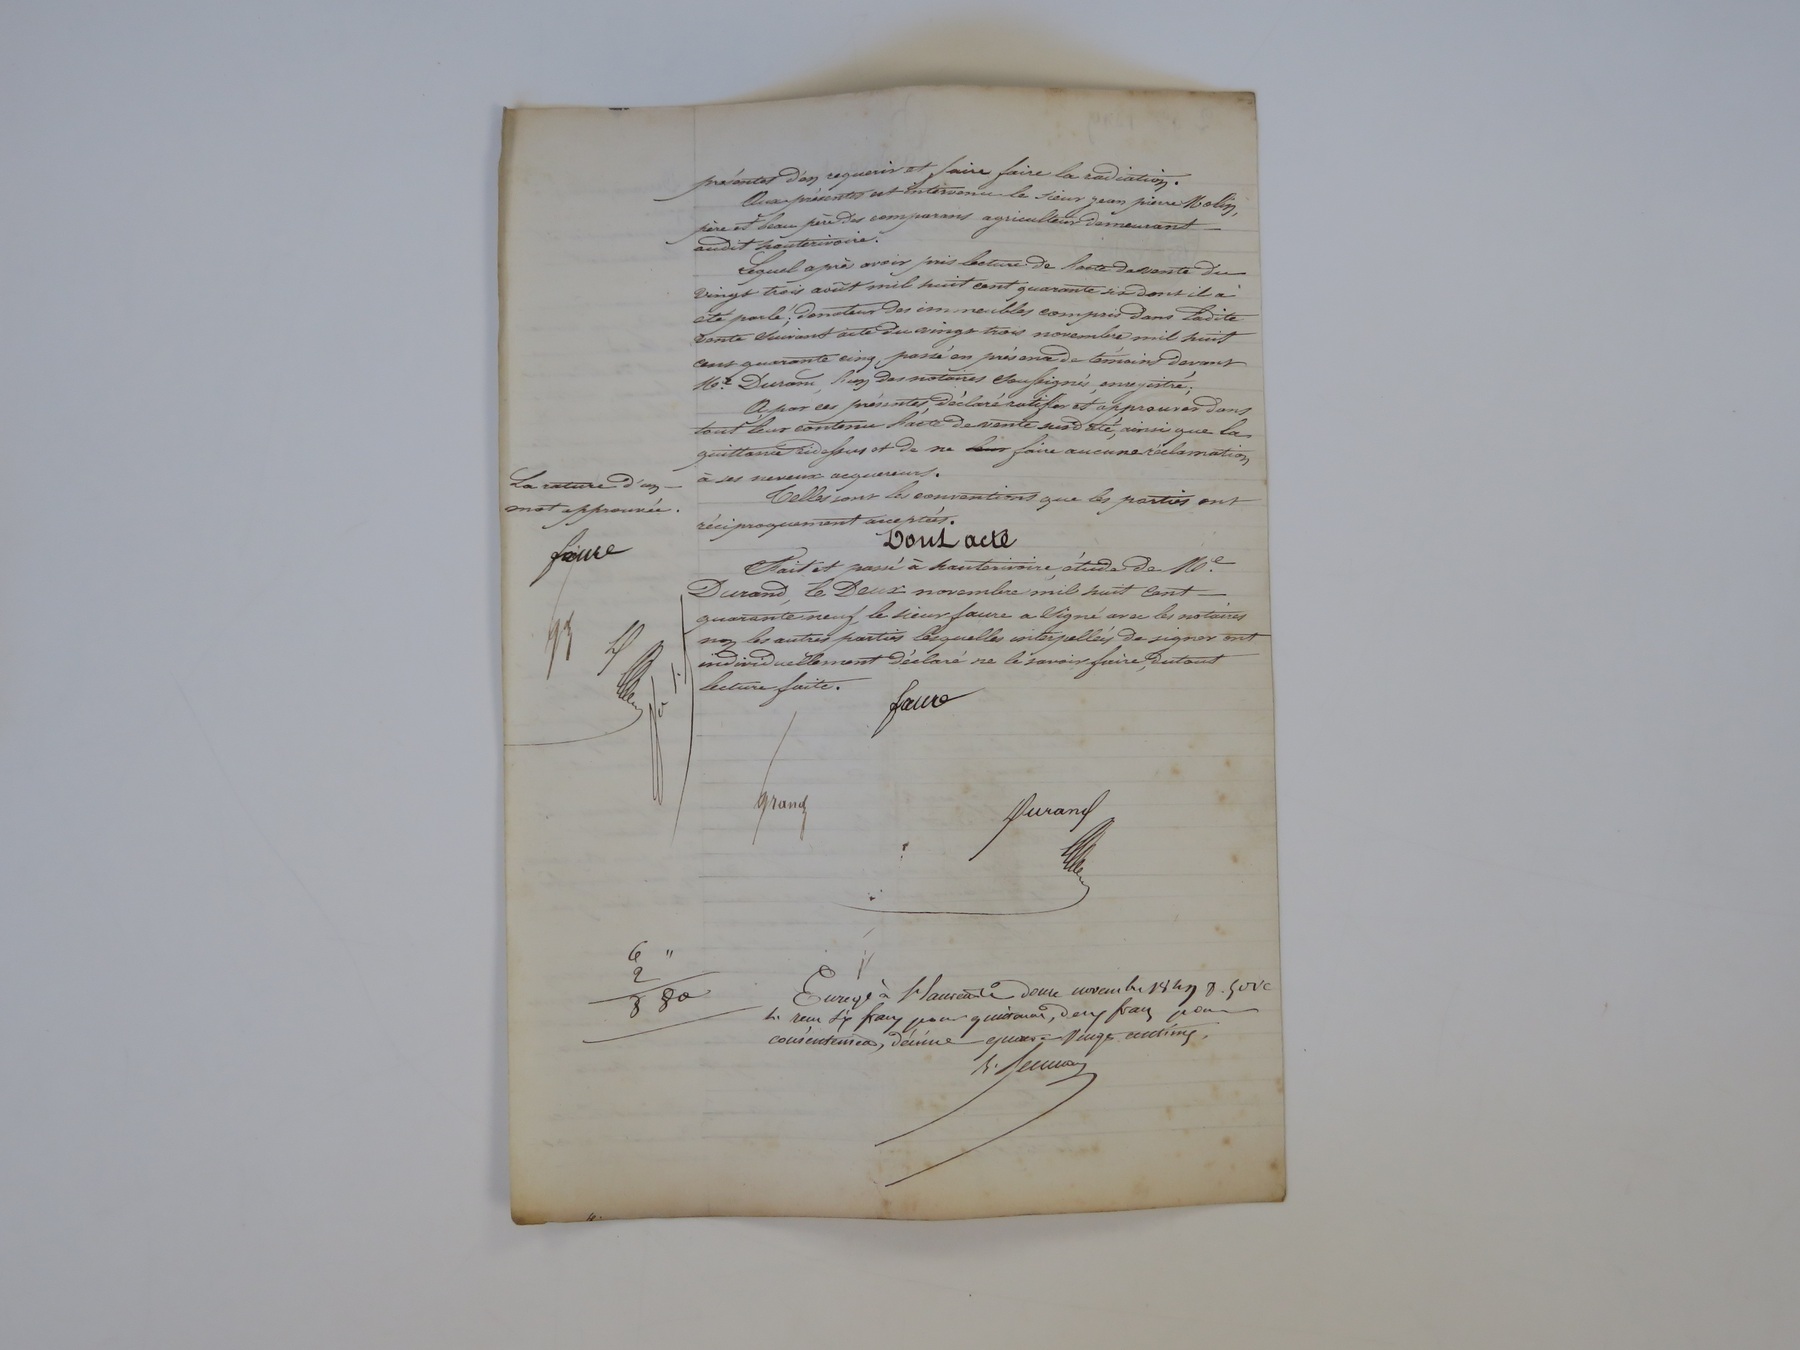 présentes d'en requerir et faire faire la radiation.
Aux présentes est intervenu le sieur jean pierre Molin,
père et beau père des comparans agriculteur demeurant
audit hauterivoire.
Lequel après avoir pris lecture de l'acte de vente du
vingt trois août mil huit cent quarante six dont il a
été parlé; donateur des immeubles compris dans ladite
vente suivant acte du vingt trois novembre mil huit
cent quarante cinq, passé en présence de témoins devant
Me. Durand, l'un des notaires soussignés, enregistré;
A par ces présentes, déclaré ratifier et approuver dans
tout leur contenu l'acte de vente susdaté, ainsi que la
quittance cidessus et de ne leur faire aucune réclamation
à ses neveux acquereurs.
Telles sont les conventions que les parties ont
réciproquement acceptées.
La rature d'un
mot approuvée.
faure
Dont acte
Fait et passé à hauterivoire, étude de Me.
Durand, Le Deux novembre mil huit cent
quarante neuf, le sieur faure a signé avec les notaires
non les autres parties lesquelles interpellées de signer ont
individuellement déclaré ne le savoir faire, dutout
lecture faite.
faure
grand
Durand
6 "
2
8 80
Enregé à St laurent le douze novembre 1849
reçu six francs pour quittance, deux francs pour
consentement, décime quatre vingt centimes.